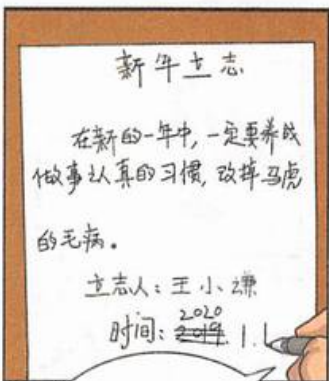 新年立志
在新的一年中，一定要养成
做事认真的习惯，改掉马虎
的毛病。
立志人：王小谦
2020
时间：2019.1.1